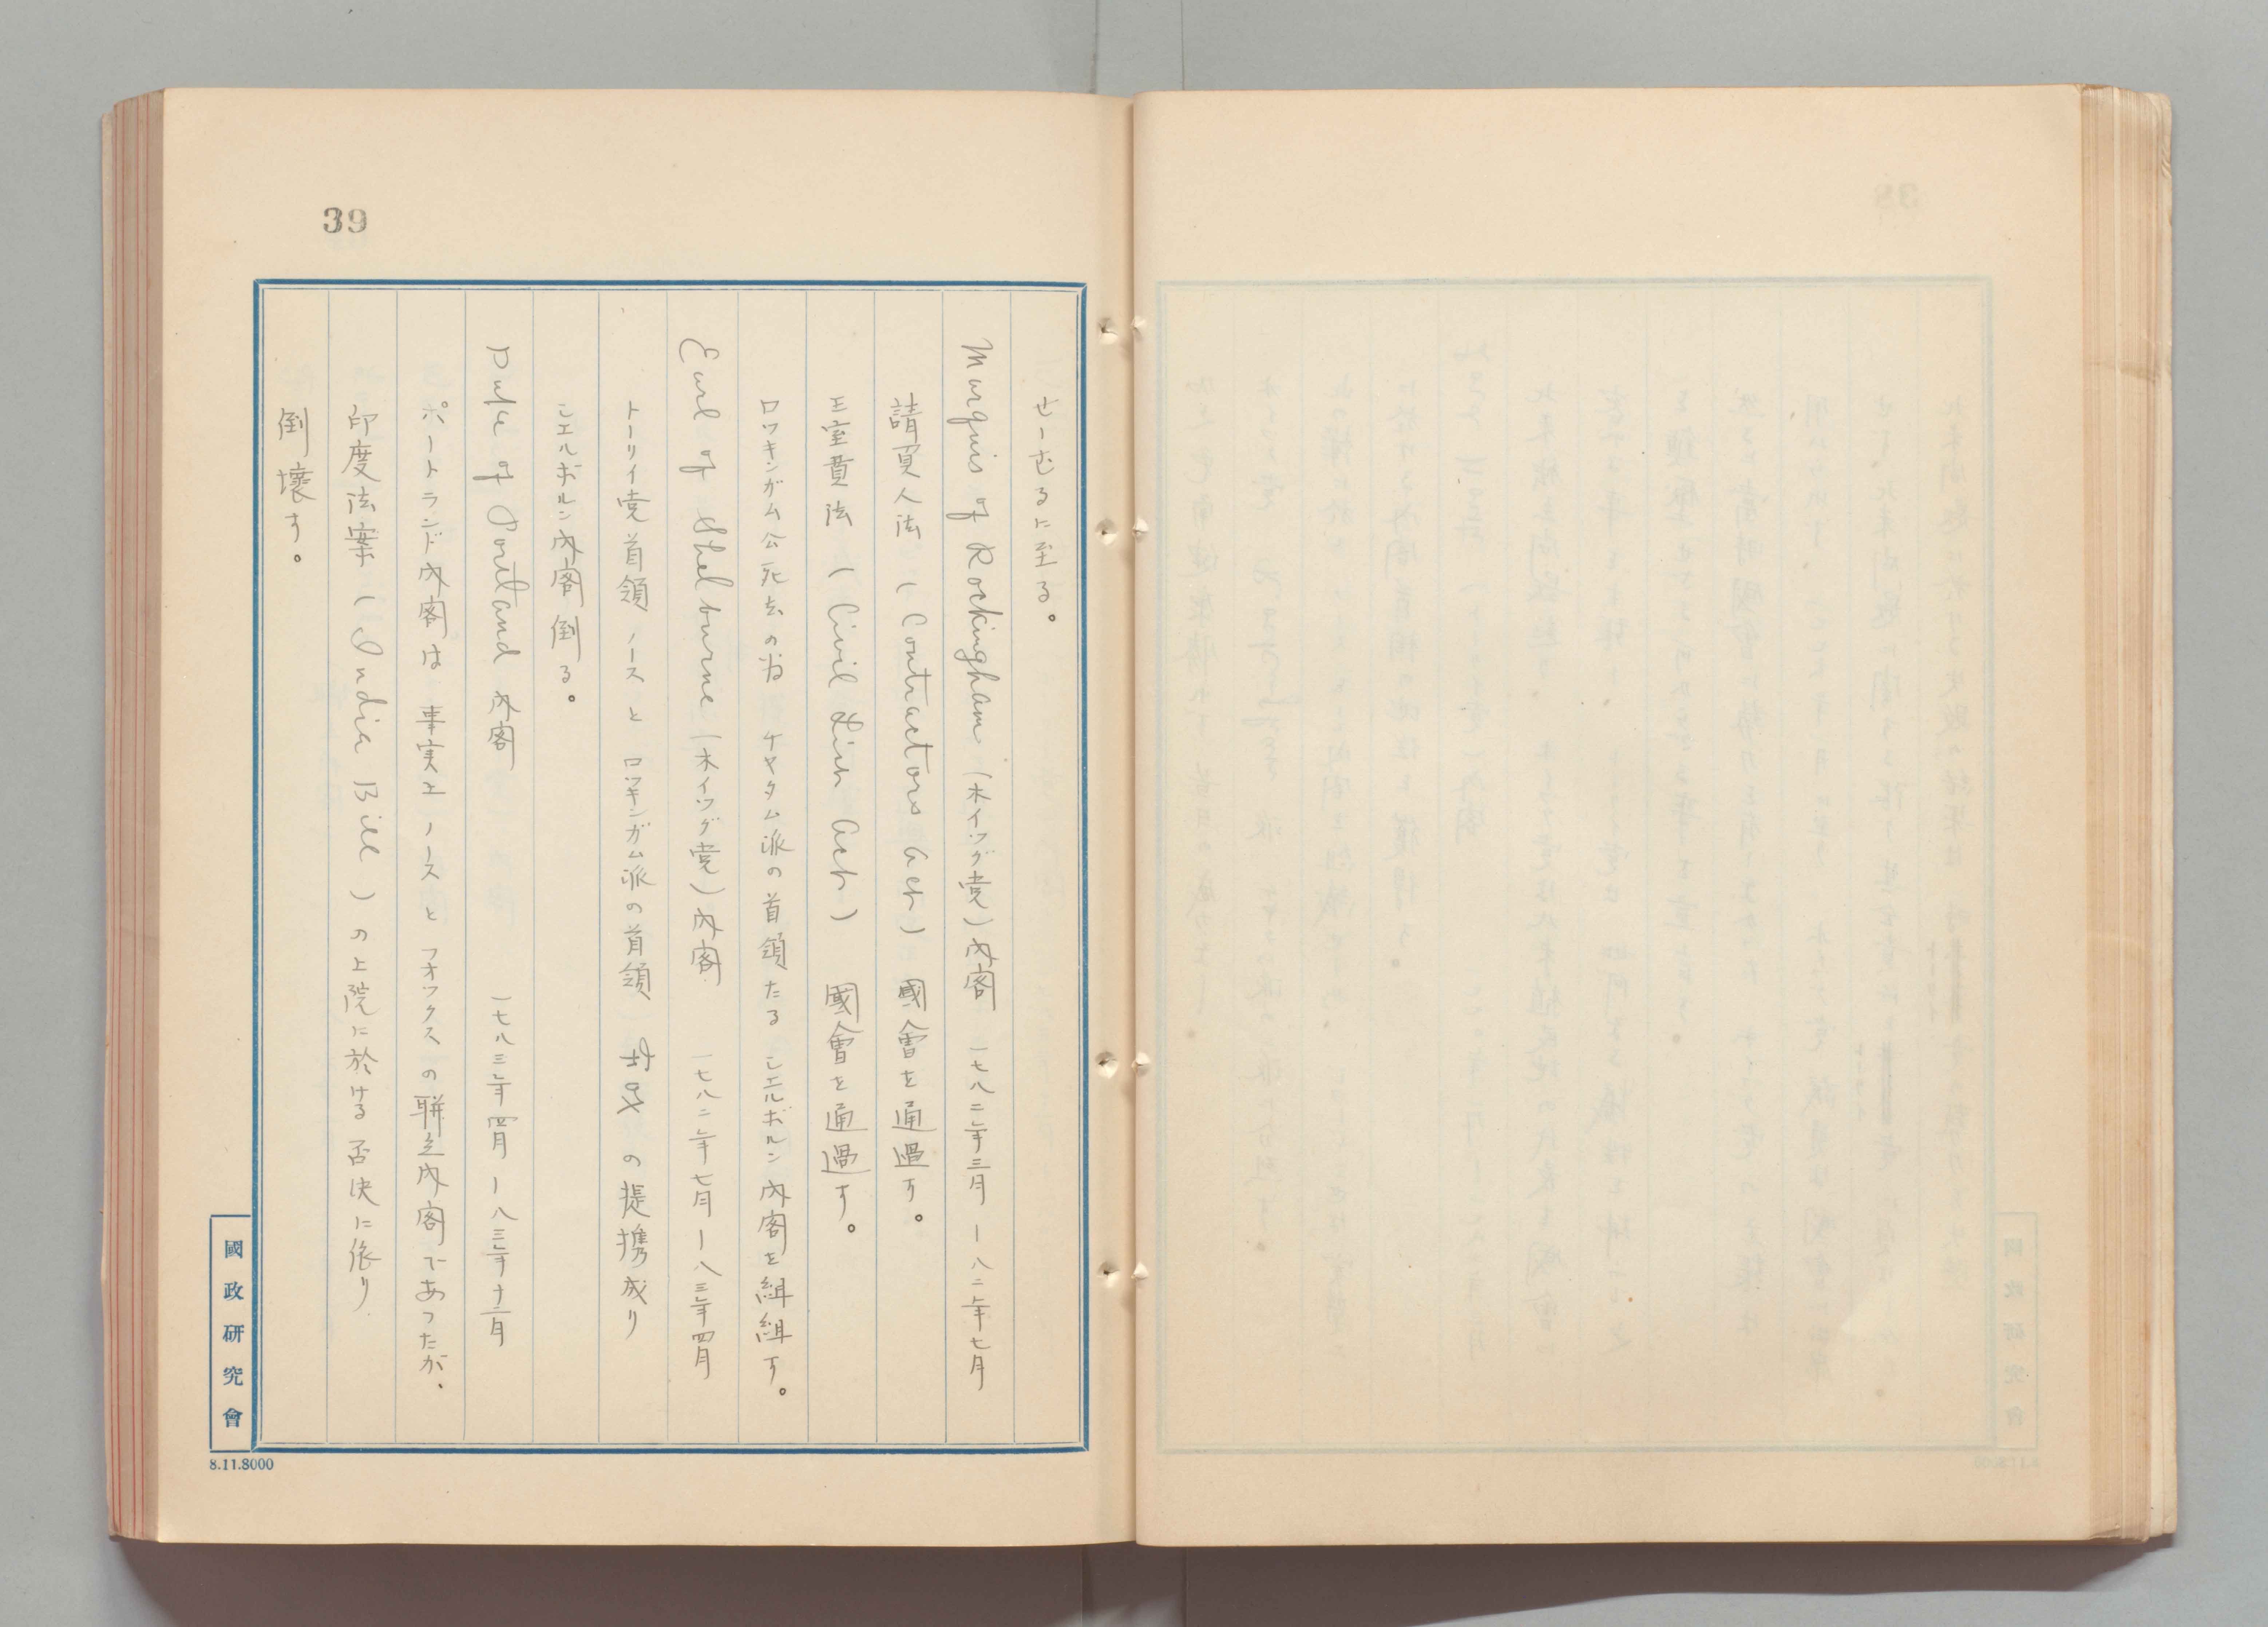 39
せしむるに至る。
Marquis of Rockingham (ホイッグ党)内客 一七八二年三月ー八二年七月
請買人法 (Contractors Act) 國會を通過す。
王室費法 (Civil List Act) 國會を通過す。
ロッキンガム公死去の為 チャタム派の首領たる シエルボルン内客を組組す。
Earl of Shelburne (ホイッグ党)内客 一七八二年七月ー八三年四月
トーリイ党首領 ノースと ロッキンガム派の首領 の提携成り
シエルボルン内客倒る。
Duke of Portland 内客 一七八三年四月ー八三年十二月
ポートランド内客は 事実上 ノースと フオックスの聯立内客であつたが、
印度法案 (India Bill) の上院に於ける否決に依り
倒壞す。
國政研究會
8.11.8000